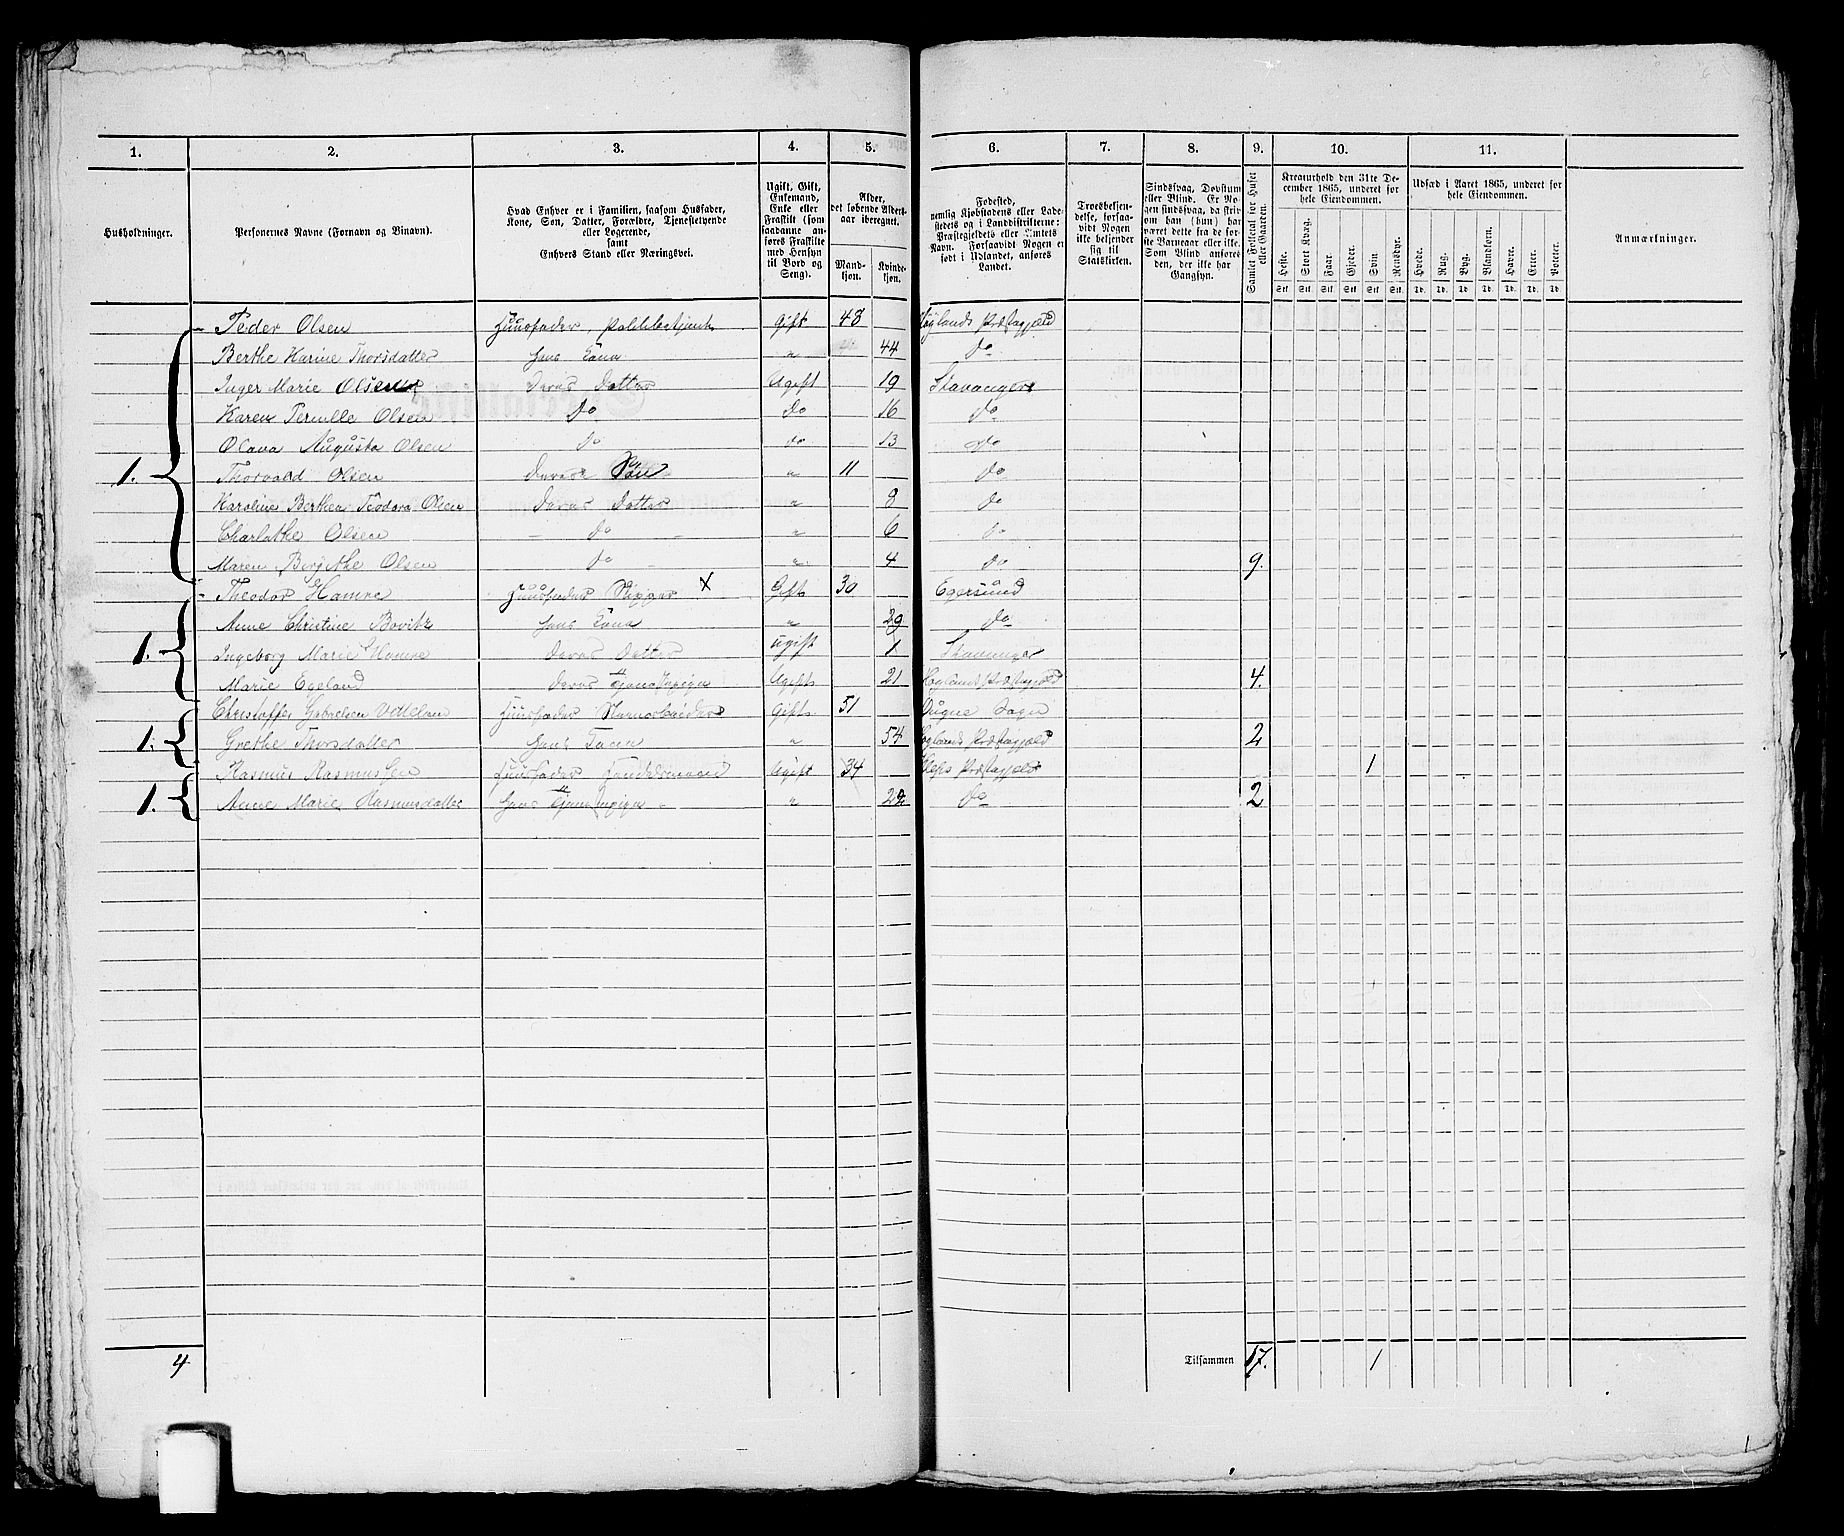 1. 2. 3. 4. 5. 6. 7. 8. 9. 10. 11.
Husholdninger.
Personernes Navne (Fornavn og Binavn).
Hvad Enhver er i Familien, saasom Husfader, Kone, Søn, Datter, Forældre, Tjenestetyende eller Logerende, samt Enhvers Stand eller Næringsvei.
Ugift, Gift, Enkemand, Enke eller Fraskilt (som saadanne anføres Fraskilte med Hensyn til Bord og Seng).
Alder, det løbende Alders-aar iberegnet.
Mandkjøn. Kvindekjøn.
Fødested, nemlig Kjøbstadens eller Ladestedets og i Landdistrikterne: Præstegjeldets eller Amtets Navn. Forsaavidt Nogen er født i Udlandet, anføres Landet.
Troesbekjendelse, forsaavidt Nogen ikke bekjender sig til Statskirken.
Sindssvag, Døvstum eller Blind. Er Nogen sindssvag, da skriv om han (hun) har været dette fra de første Barneaar eller ikke. Som Blind anføres den, der ikke har Gangsyn.
Samlet Folketal for Huset eller Gaarden.
Kreaturhold den 31te December 1865, underet for hele Eiendommen.
Heste. Stort Kvæg. Faar. Gjeder. Svin. Rensdyr.
Udsæd i Aaret 1865, underet for hele Eiendommen.
Hvede. Rug. Byg. Blandkorn. Havre. Erter. Poteter.
Anmærkninger.
Peder Olsen Huusfader, Politibetjent Gift 48 Høylands Præstegjæld
Berthe Karine Thorsdatter Hans Kona " 44 do
Inger Marie Olsen Deres Datter Ugift 19 Stavanger
Karen Pernille Olsen do do 16 do
Olava Augusta Olsen do do 13 do
1. Thorvald Olsen Deres Søn " 11 do
Karoline Berthea Teodora Olsen Deres Datter " 8 do
Charlothe Olsen do " 6 do
Maren Birgithe Olsen do " 4 do 9.
Theodor Hamre Huusfader Skipper X Gift 30 Egersund
Anne Christine Bovitz Hans Kona " 29 do
1. Ingeborg Marie Hamre Deres Datter ugift 1 Stavanger
Marie Egeland Deres Tjenestepige Ugift 21 Høylands Præstegjæld 4.
Christoffer Gabrielsen Huusfader Gift 51 Sogn
1. Grethe Thorsdatter Hans Kona " 54 Høylands Præstegjæld 2
Rasmus Rasmussen Huusfader Handelsmand Ugift 34 Kleps Præstegjeld 1
1. Anne Marie Rasmusdatter Hans Tjenestepige " 22 do 2
4 Tilsammen 17. 1